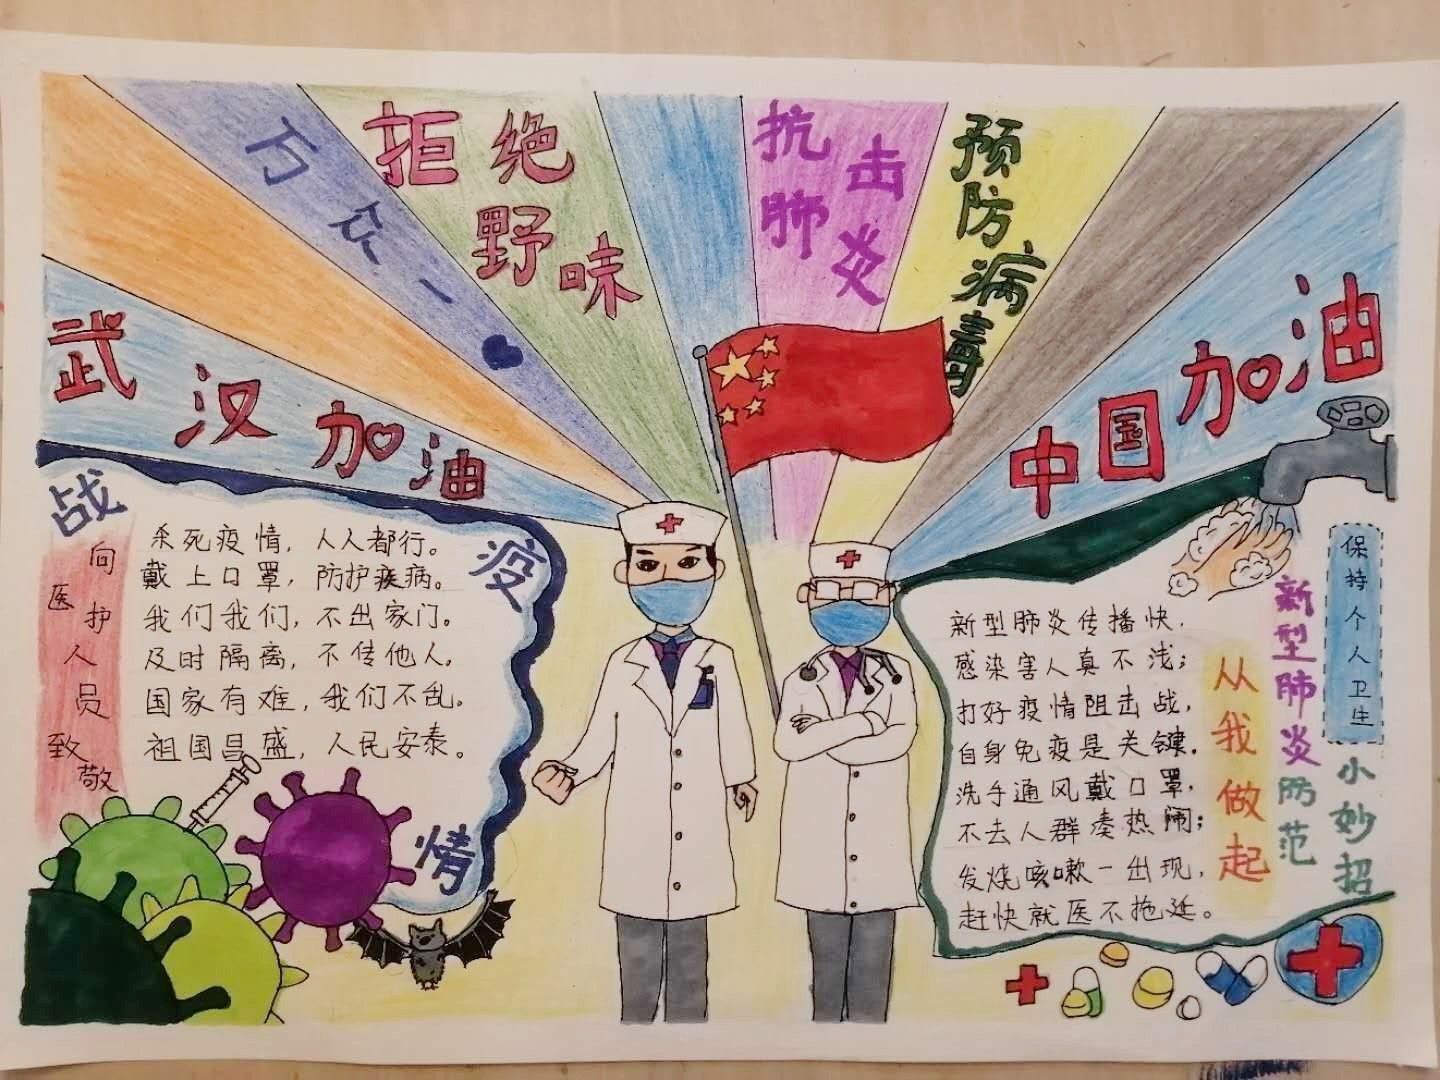 武汉加油
万众一
拒绝
野味
抗击
肺炎
预防病毒
中国加油
战疫情
向医护人员致敬
杀死疫情，人人都行。
戴上口罩，防护疾病。
我们我们，不出家门。
及时隔离，不传他人。
国家有难，我们不乱。
祖国昌盛，人民安泰。
保持个人卫生
小妙招
新型肺炎
防范
从我做起
新型肺炎传播快，
感染害人真不浅；
打好疫情阻击战，
自身免疫是关键。
洗手通风戴口罩，
不去人群凑热闹；
发烧咳嗽一出现，
赶快就医不拖延。